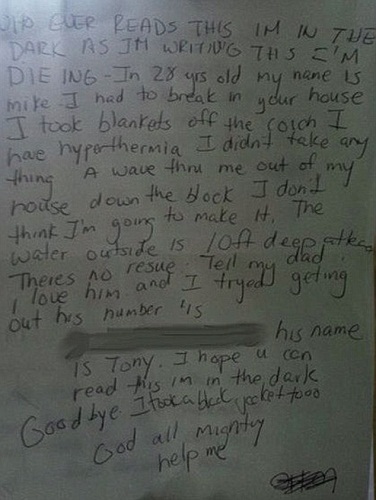 WHO EVER READS THIS IM IN THE
DARK AS I'M WRITING THIS I'M
DIE ING - In 28 yrs old my name is
mike I had to break in your house
I took blankets off the coich I
hae hyperthermia I didnt take any
thing A wave thru me out of my
house down the block I don't
think I'm going to make it. The
water outside is 10ft deep atleas
Theres no resue. Tell my dad
I love him and I tryed geting
out his number is
his name
is Tony. I hope u can
read this im in the dark
Good bye. I took a black jacket tooo
God all mighty
help me